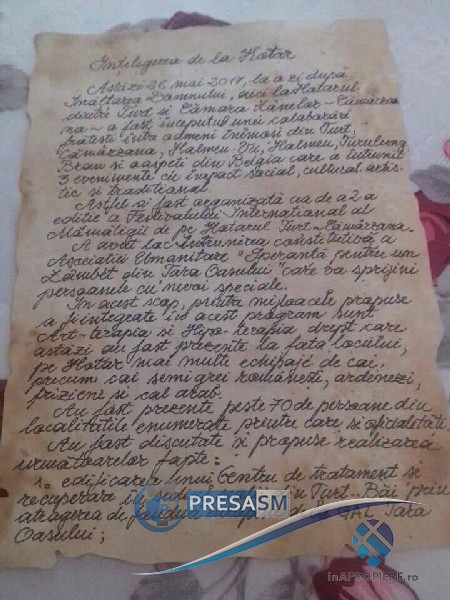 Înțelegerea de la Hotar
Astăzi 26 mai 2017, la o zi după
Înălțarea Domnului, aici la Hotarul
dintre Turț și Cămara Hanelor - Cămărzana
na ~ a fost începutul unei colaborări
frățești între oameni inimoși din Turț,
Cămărzana, Halmeu-Vii, Halmeu, Turulung,
și oaspeți din Belgia care a întrunit
3 evenimente cu impact social, cultural artis-
tic și tradițional.
Astfel a fost organizată cea de a 2 a
ediție a Festivalului Internațional al
Mămăligii de pe Hotarul Turț-Cămărzana.
A avut loc Întrunirea constitutivă a
Asociației Umanitare "Speranță pentru un
Zâmbet din Țara Oașului" care va sprijini
persoanele cu nevoi speciale.
În acest scop, printre mijloacele propuse
a fi integrate în acest program sunt
Art-terapia și Hipo-terapia drept care
astăzi au fost prezente la fața locului,
pe Hotar mai multe echipaje de cai,
precum cai semigrei românești, ardenezi,
frizieni și cal arab.
Au fost prezente peste 70 de persoane din
localitățile enumerate printre care și oficialități.
Au fost discutate și propuse realizarea
următoarelor fapte:
1. edificarea unui Centru de tratament și
recuperare în Turț-Băi prin
atragerea de fonduri de GAL Țara
Oașului;
PRESASM
inAPROPIERE.ro